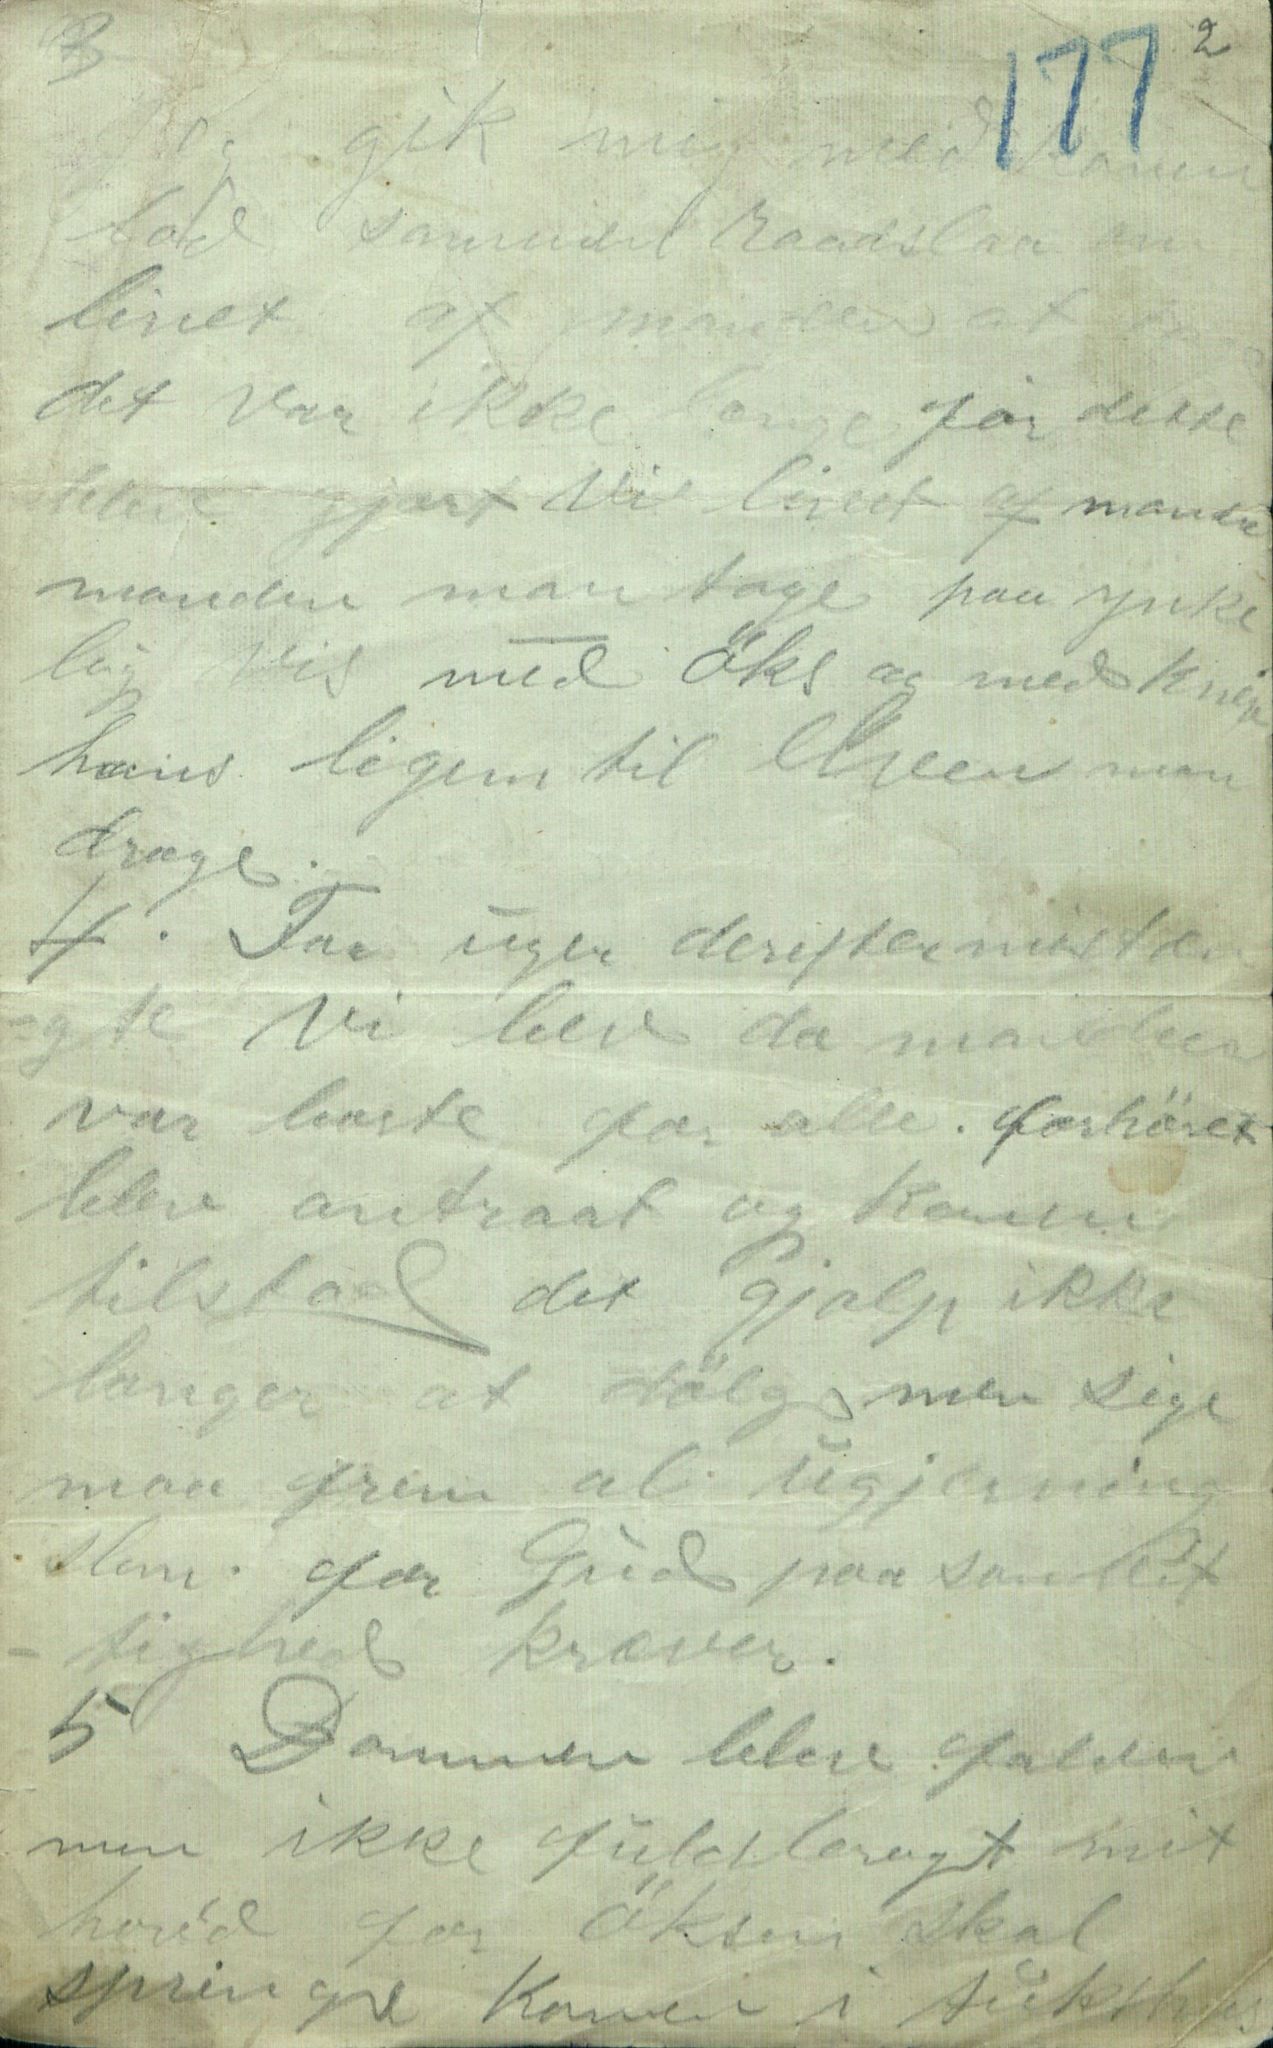 3 177 2
Jeg gik mig med Konen
tod sammen Raadslaa om
livet af manden at
det var ikke længe før dette
blev gjort Vi livet af mande
manden mon tage paa ynke
lig Vis med öks og med Kniv
hans ligem til Elven mon
drage.
4. Faa uger derefter mistæn
=gte Vi blev da manden
var borte for alle. forhöret
blev antraat og Konen
tilstod det hjalp ikke
længer at dölge men sige
maa frem al ugjerning
slem. for Gud paa sandhet
- tighed kræver.
5 Dommen blev falden
men ikke fuldbragt mit
hovéd for öksen skal
springe Konen i tukthus